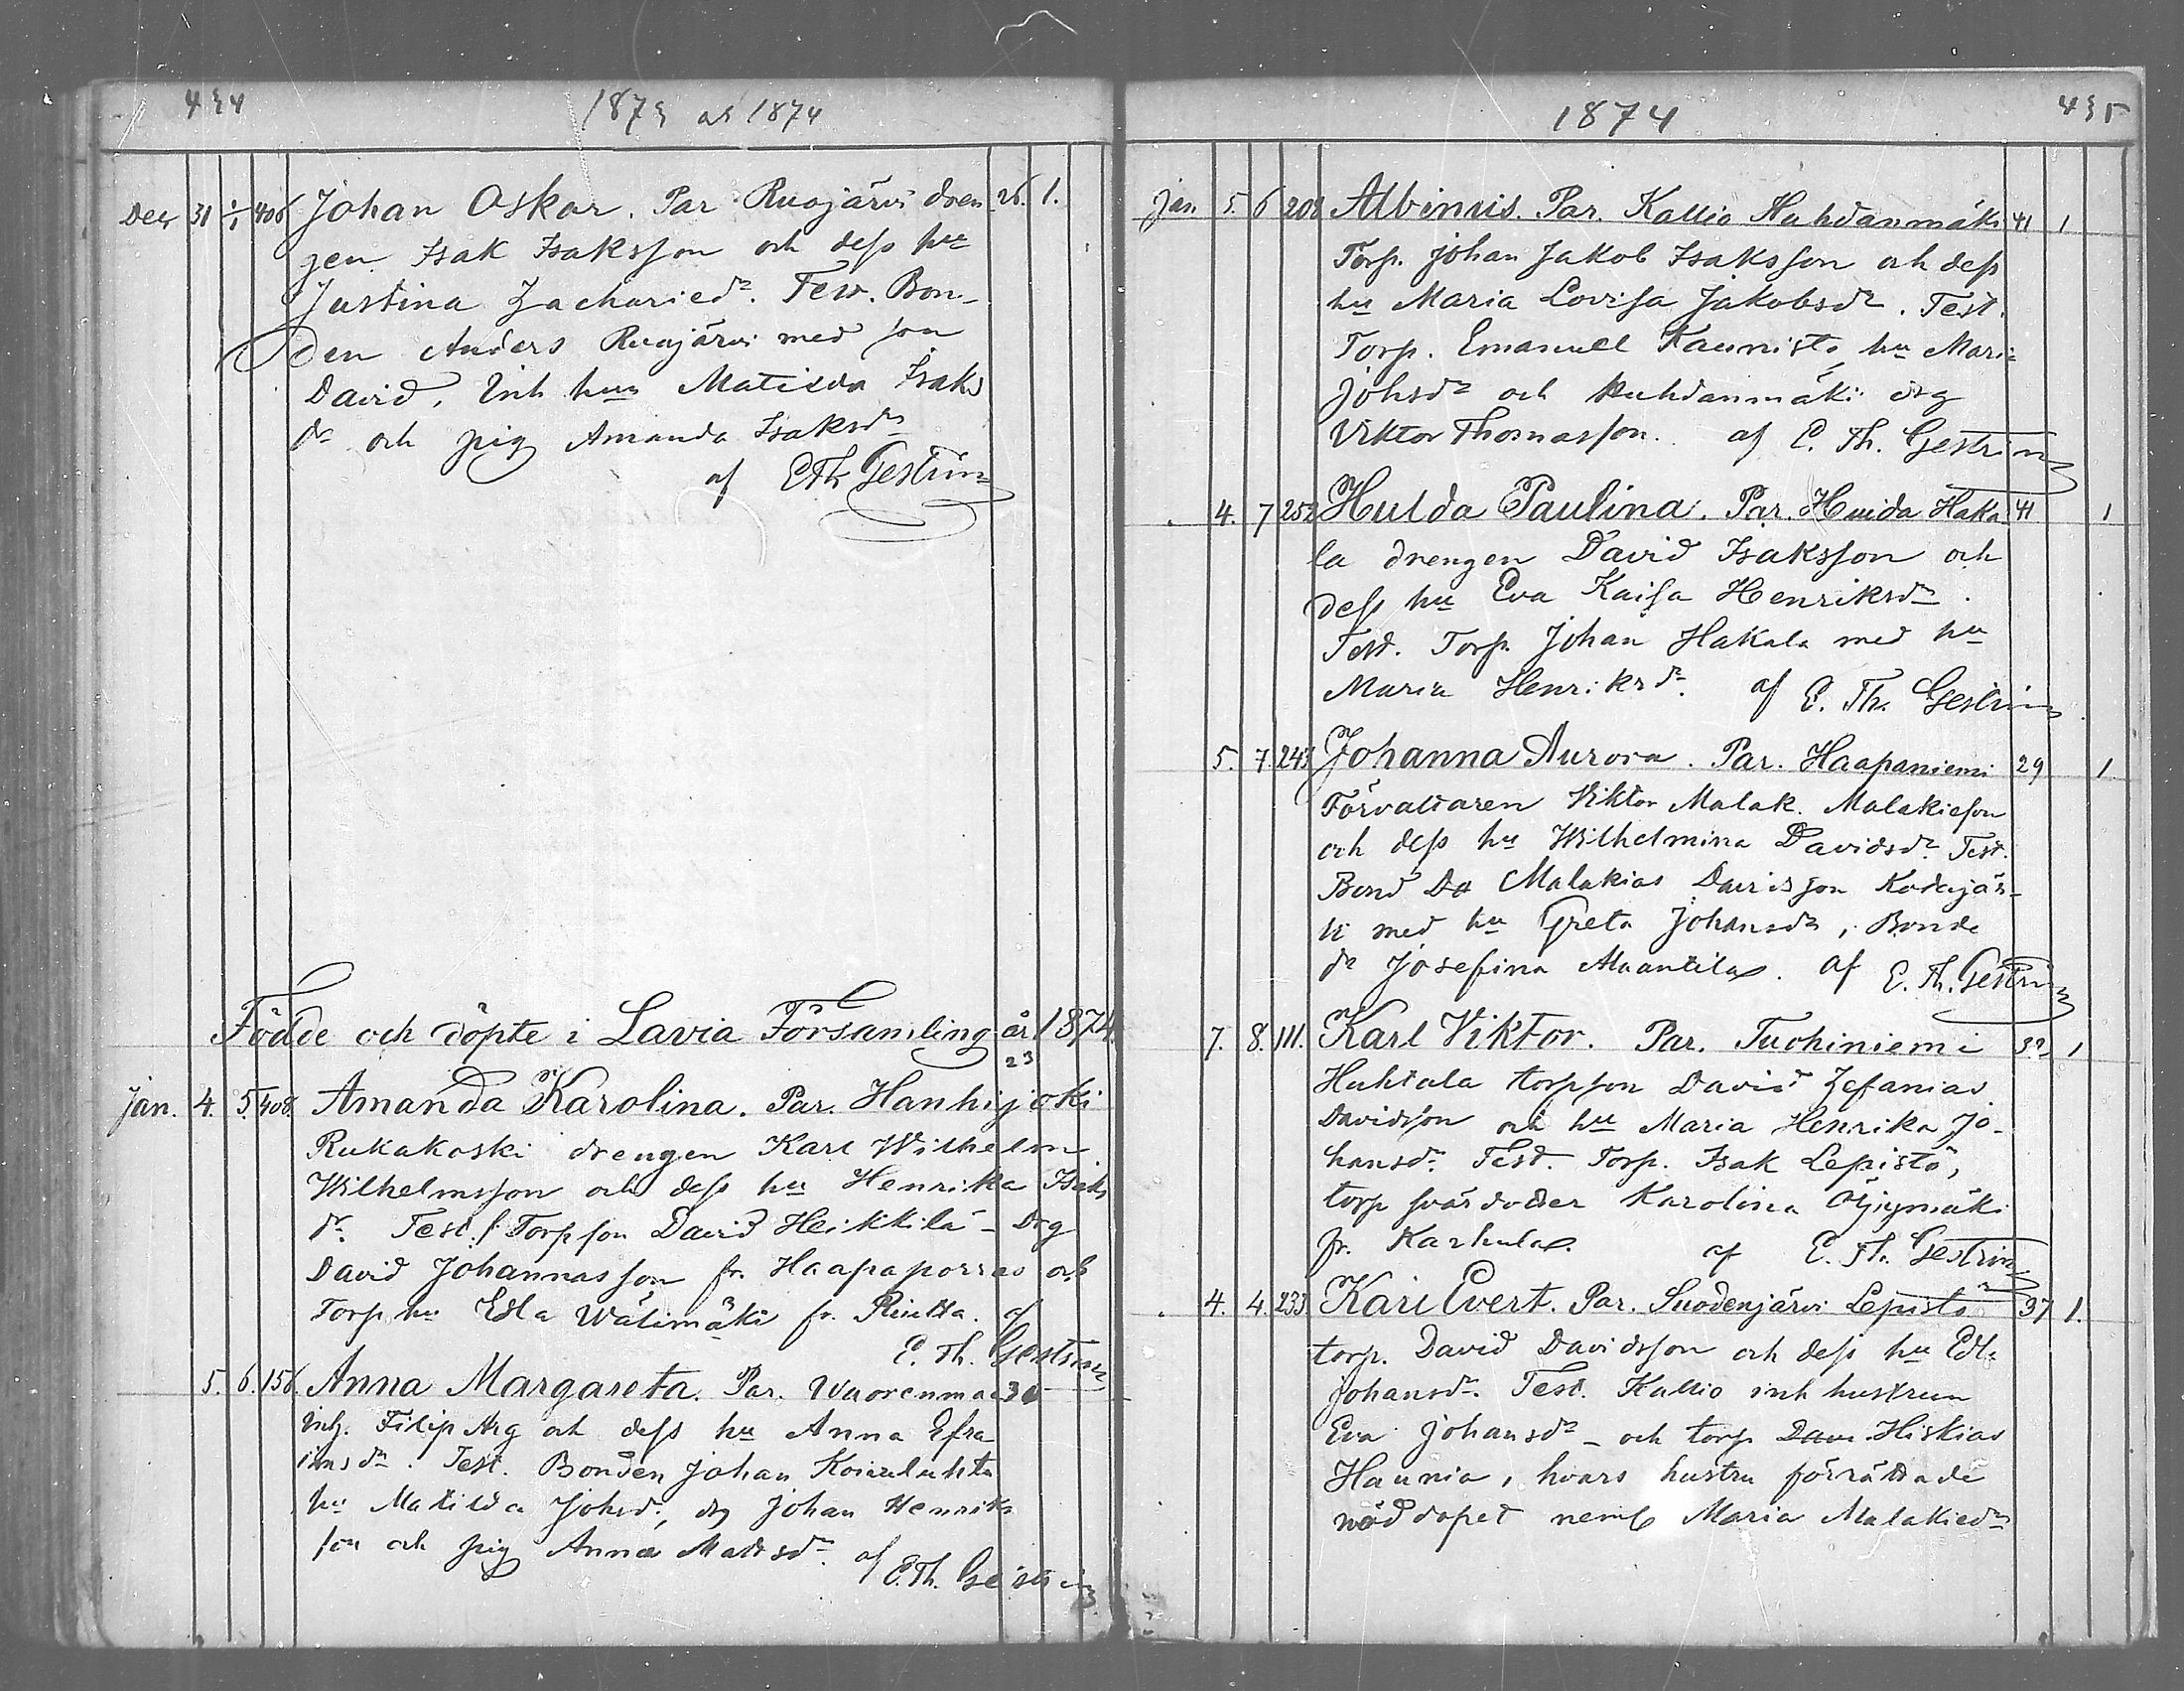 434 1873 1874
Dec 31 1/1 406 Johan Oskar. Par Ruojärvi dren 26. 1.
gen Isak Isaksson och dess hu
Justina Zacharied. Test. Bon-
den Anders Ruojärvi med son
David, Inh hun Matilda Isaks
dr och pig Amanda Isaksdr
af E Th Gestrin
Födde och döpte i Lavia Församling år 1874.
23
Jan. 4. 5. 408. Amanda Karolina. Par. Hanhijoki
Rukakoski drengen Karl Wilhelm
Wilhelmsson och dess hu Henrika Isaks
dr. Test. Torpson David Heikkilä - drg
David Johannasson fr. Haapaporras och
Torp hu Edla Wälimäki fr. Riutta. af
E. Th. Gestrin
5. 6. 156. Anna Margareta. Par. Wuorenmaa
Inh. Filip Arg och dess hu Anna Efra-
imsdr. Test. Bonden Johan
hu Matilda Johsdr, drg Johan Henriks
son och pig Anna Mattsdr. af
E. Th. Gestrin
1874 435
Jan. 5. 6 208 Albinus. Par. Kallio Huhdanmäki 41 1
Torp. Johan Jakob Isaksson och dess
hu Maria Lovisa Jakobsdr. Test.
Torp. Emanuel Kaunisto, hu Mari-
Johsdr och Huhdanmäki drg
Viktor Thomasson. af E. Th. Gestrin
4. 7 252 Hulda Paulina. Par. Huida Haka 41 1
la drengen David Isaksson och
dess hu Eva Kaisa Henriksdr.
Test. Torp. Johan Hakala med hu
Maria Henriksdr. af E. Th. Gestrin
5. 7. 243 Johanna Aurora. Par. Haapaniemi 29 1
Förvaltaren Viktor Malak. Malakieson
och dess hu Wilhelmina Davidsdr. Test.
Bond Da Malakias Davidsson Kodajär-
vi med hu Greta Johansdr, Bonde
dr Josefina Alaantila. af E. Th. Gestrin
7. 8. 111. Karl Viktor. Par. Tuohiniemi 32 1
Huhtala torpson David Zefanias
Davidsson och hu Maria Henrika Jo-
hansdr. Test. Torp. Isak Lepistö,
torp svärdotter Karolina
fr. Karhula. af E. Th. Gestrin
4. 4. 233 Karl Evert. Par. Suodenjärvi Lepistö 37 1.
torp. David Davidsson och dess hu Edla
Johansdr. Test. Kallio inh hustrun
Eva Johansdr - och torp Dav. Hiskias
Haunia, hvars hustru förrättade
nöddopet neml Maria Malakiedr